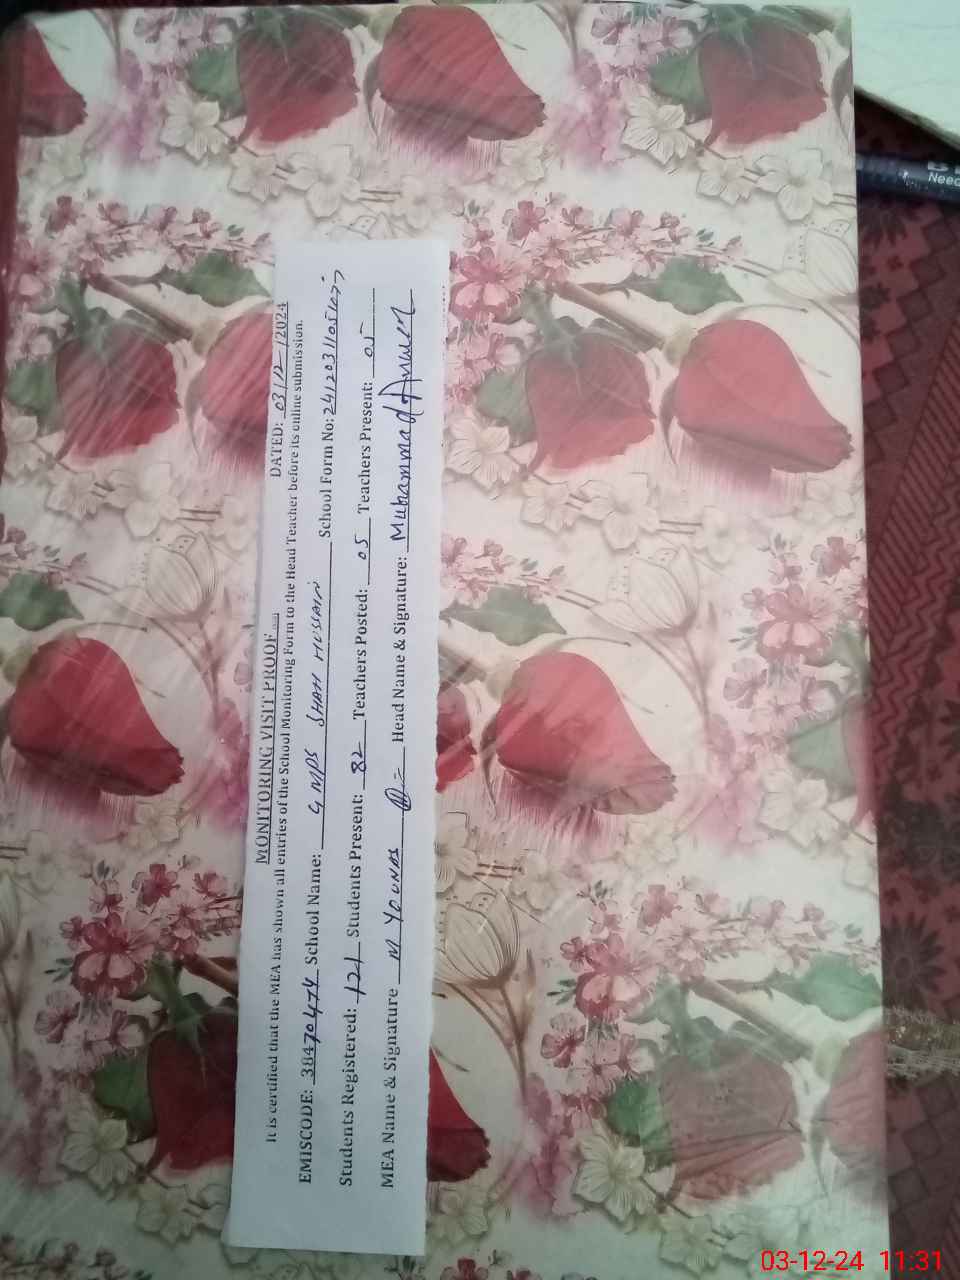 MONITORING VISIT PROOF
DATED: 03/12/2024
It is certified that the MEA has shown all entries of the School Monitoring Form to the Head Teacher before its online submission.
EMISCODE: 38470474 School Name: GMPS SHAH HUSSAIN School Form No:
Students Registered: 121 Students Present: 82 Teachers Posted: 05 Teachers Present: 05
MEA Name & Signature M YOUNAS Head Name & Signature: Muhammad Anwer
Need
03-12-24 11:31